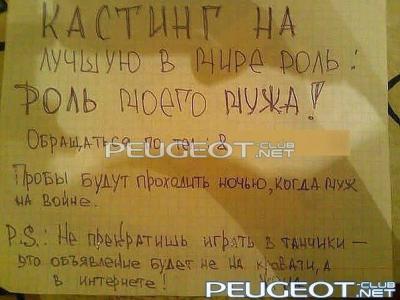 КАСТИНГ НА
ЛУЧШУЮ В МИРЕ РОЛЬ:
РОЛЬ МОЕГО МУЖА!
Обращаться по тел: 8
PEUGEOT-CLUB.NET
Пробы будут проходить ночью, когда муж
на войне.
P.S.: Не прекратишь играть в танчики –
это объявление будет не на кровати, а
в интернете!
PEUGEOT-CLUB.NET
PEUGEOT-CLUB.NET